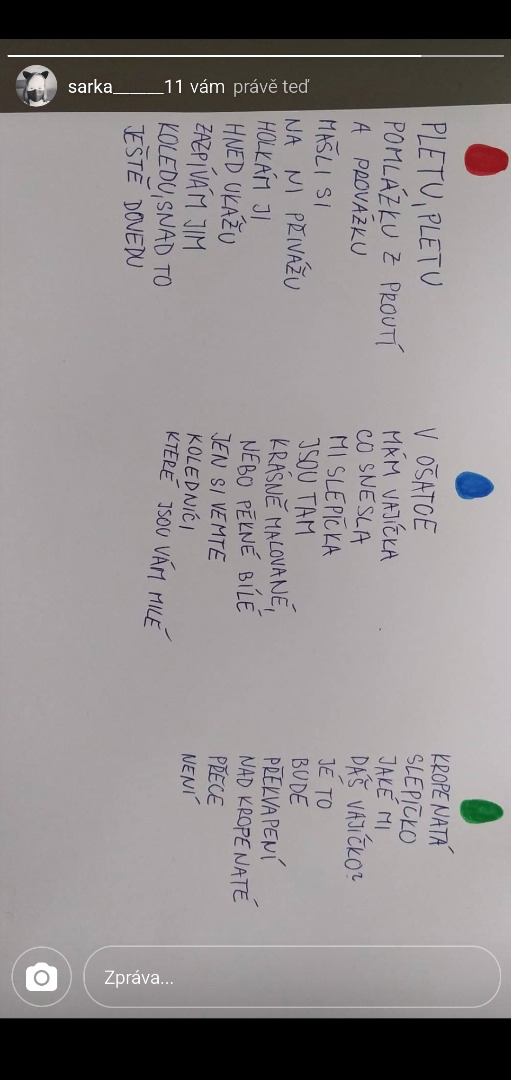 sarka______11 vám právě teď
PLETU, PLETU
POMLÁZKU Z PROUTÍ
A PROVÁZKU
MAŠLI SI
NA NI PŘIVÁŽU
HOLKÁM JI
HNED UKÁŽU
ZAZPÍVÁM JIM
KOLEDU, SNAD TO
JEŠTĚ DOVEDU
V OŠATCE
MÁM VAJÍČKA
CO SNESLA
MI SLEPIČKA
JSOU TAM
KRÁSNĚ MALOVANÉ,
NEBO PĚKNÉ BÍLÉ
JEN SI VEMTE
KOLEDNÍCI
KTERÉ JSOU VÁM MILÉ
KROPENATÁ
SLEPIČKO
JAKÉ MI
DÁŠ VAJÍČKO?
JE TO
BUDE
PŘEKVAPENÍ
NAD KROPENATÉ
PŘECE
NENÍ
Zpráva...